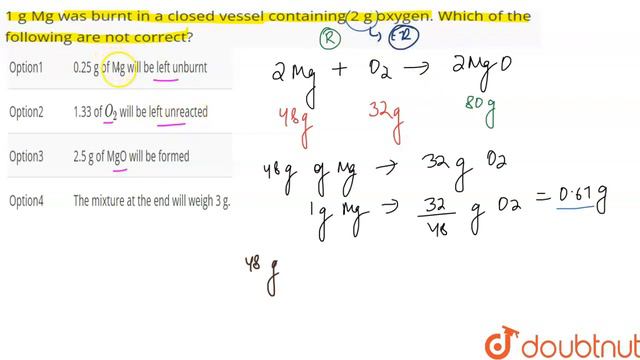 1 g Mg was burnt in a closed vessel containing 2 g oxygen. Which of the
following are not correct?
R ER
Option1 0.25 g of Mg will be left unburnt
2Mg + O2 → 2MgO
Option2 1.33 of O2 will be left unreacted
48g 32g 80g
Option3 2.5 g of MgO will be formed
48g of Mg → 32g O2
Option4 The mixture at the end will weigh 3 g.
1g Mg → 32/48 g O2 = 0.67g
48 g
doubtnut